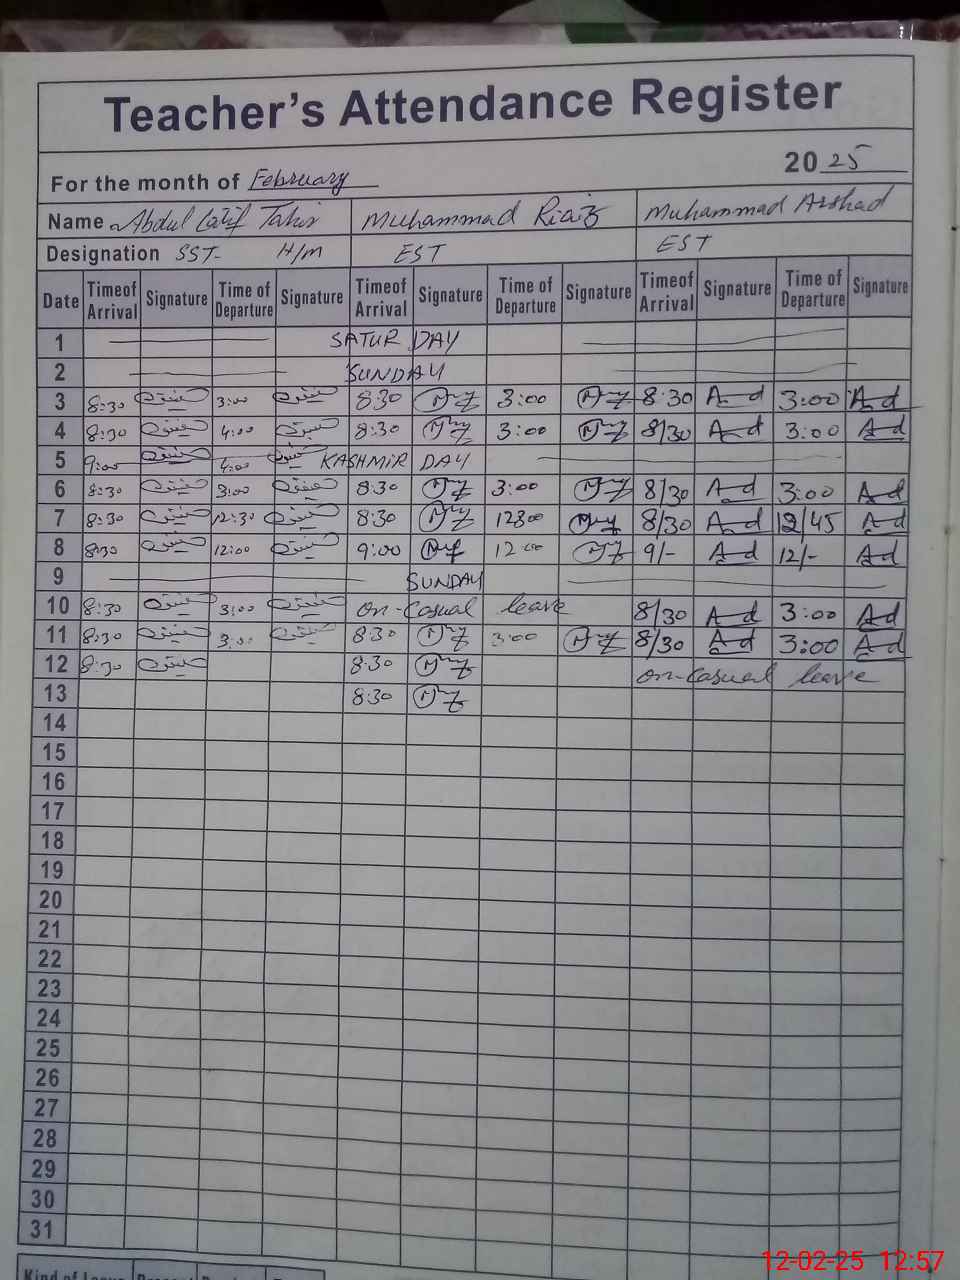 Teacher's Attendance Register
For the month of February 2025
Name Abdul Latif Tahir Muhammad Riaz Muhammad Arshad
Designation SST- H/M EST EST
Date Timeof Arrival Signature Time of Departure Signature Timeof Arrival Signature Time of Departure Signature Timeof Arrival Signature Time of Departure Signature
1 SATUR DAY
2 SUNDAY
3 8:30 3:00 8:30 3:00 8:30 3:00
4 8:30 4:00 8:30 3:00 8/30 3:00
5 9:00 4:00 KASHMIR DAY
6 8:30 3:00 8:30 3:00 8/30 3:00
7 8:30 12:30 8:30 8/30 12/45
8 8:30 12:00 9:00 12:00 9/- 12/-
9 SUNDAY
10 8:30 3:00 on-Casual leave 8/30 3:00
11 8:30 3:00 8:30 3:00 8/30 3:00
12 8:30 8:30 on-Casual leave
13 8:30
14
15
16
17
18
19
20
21
22
23
24
25
26
27
28
29
30
31
12-02-25 12:57